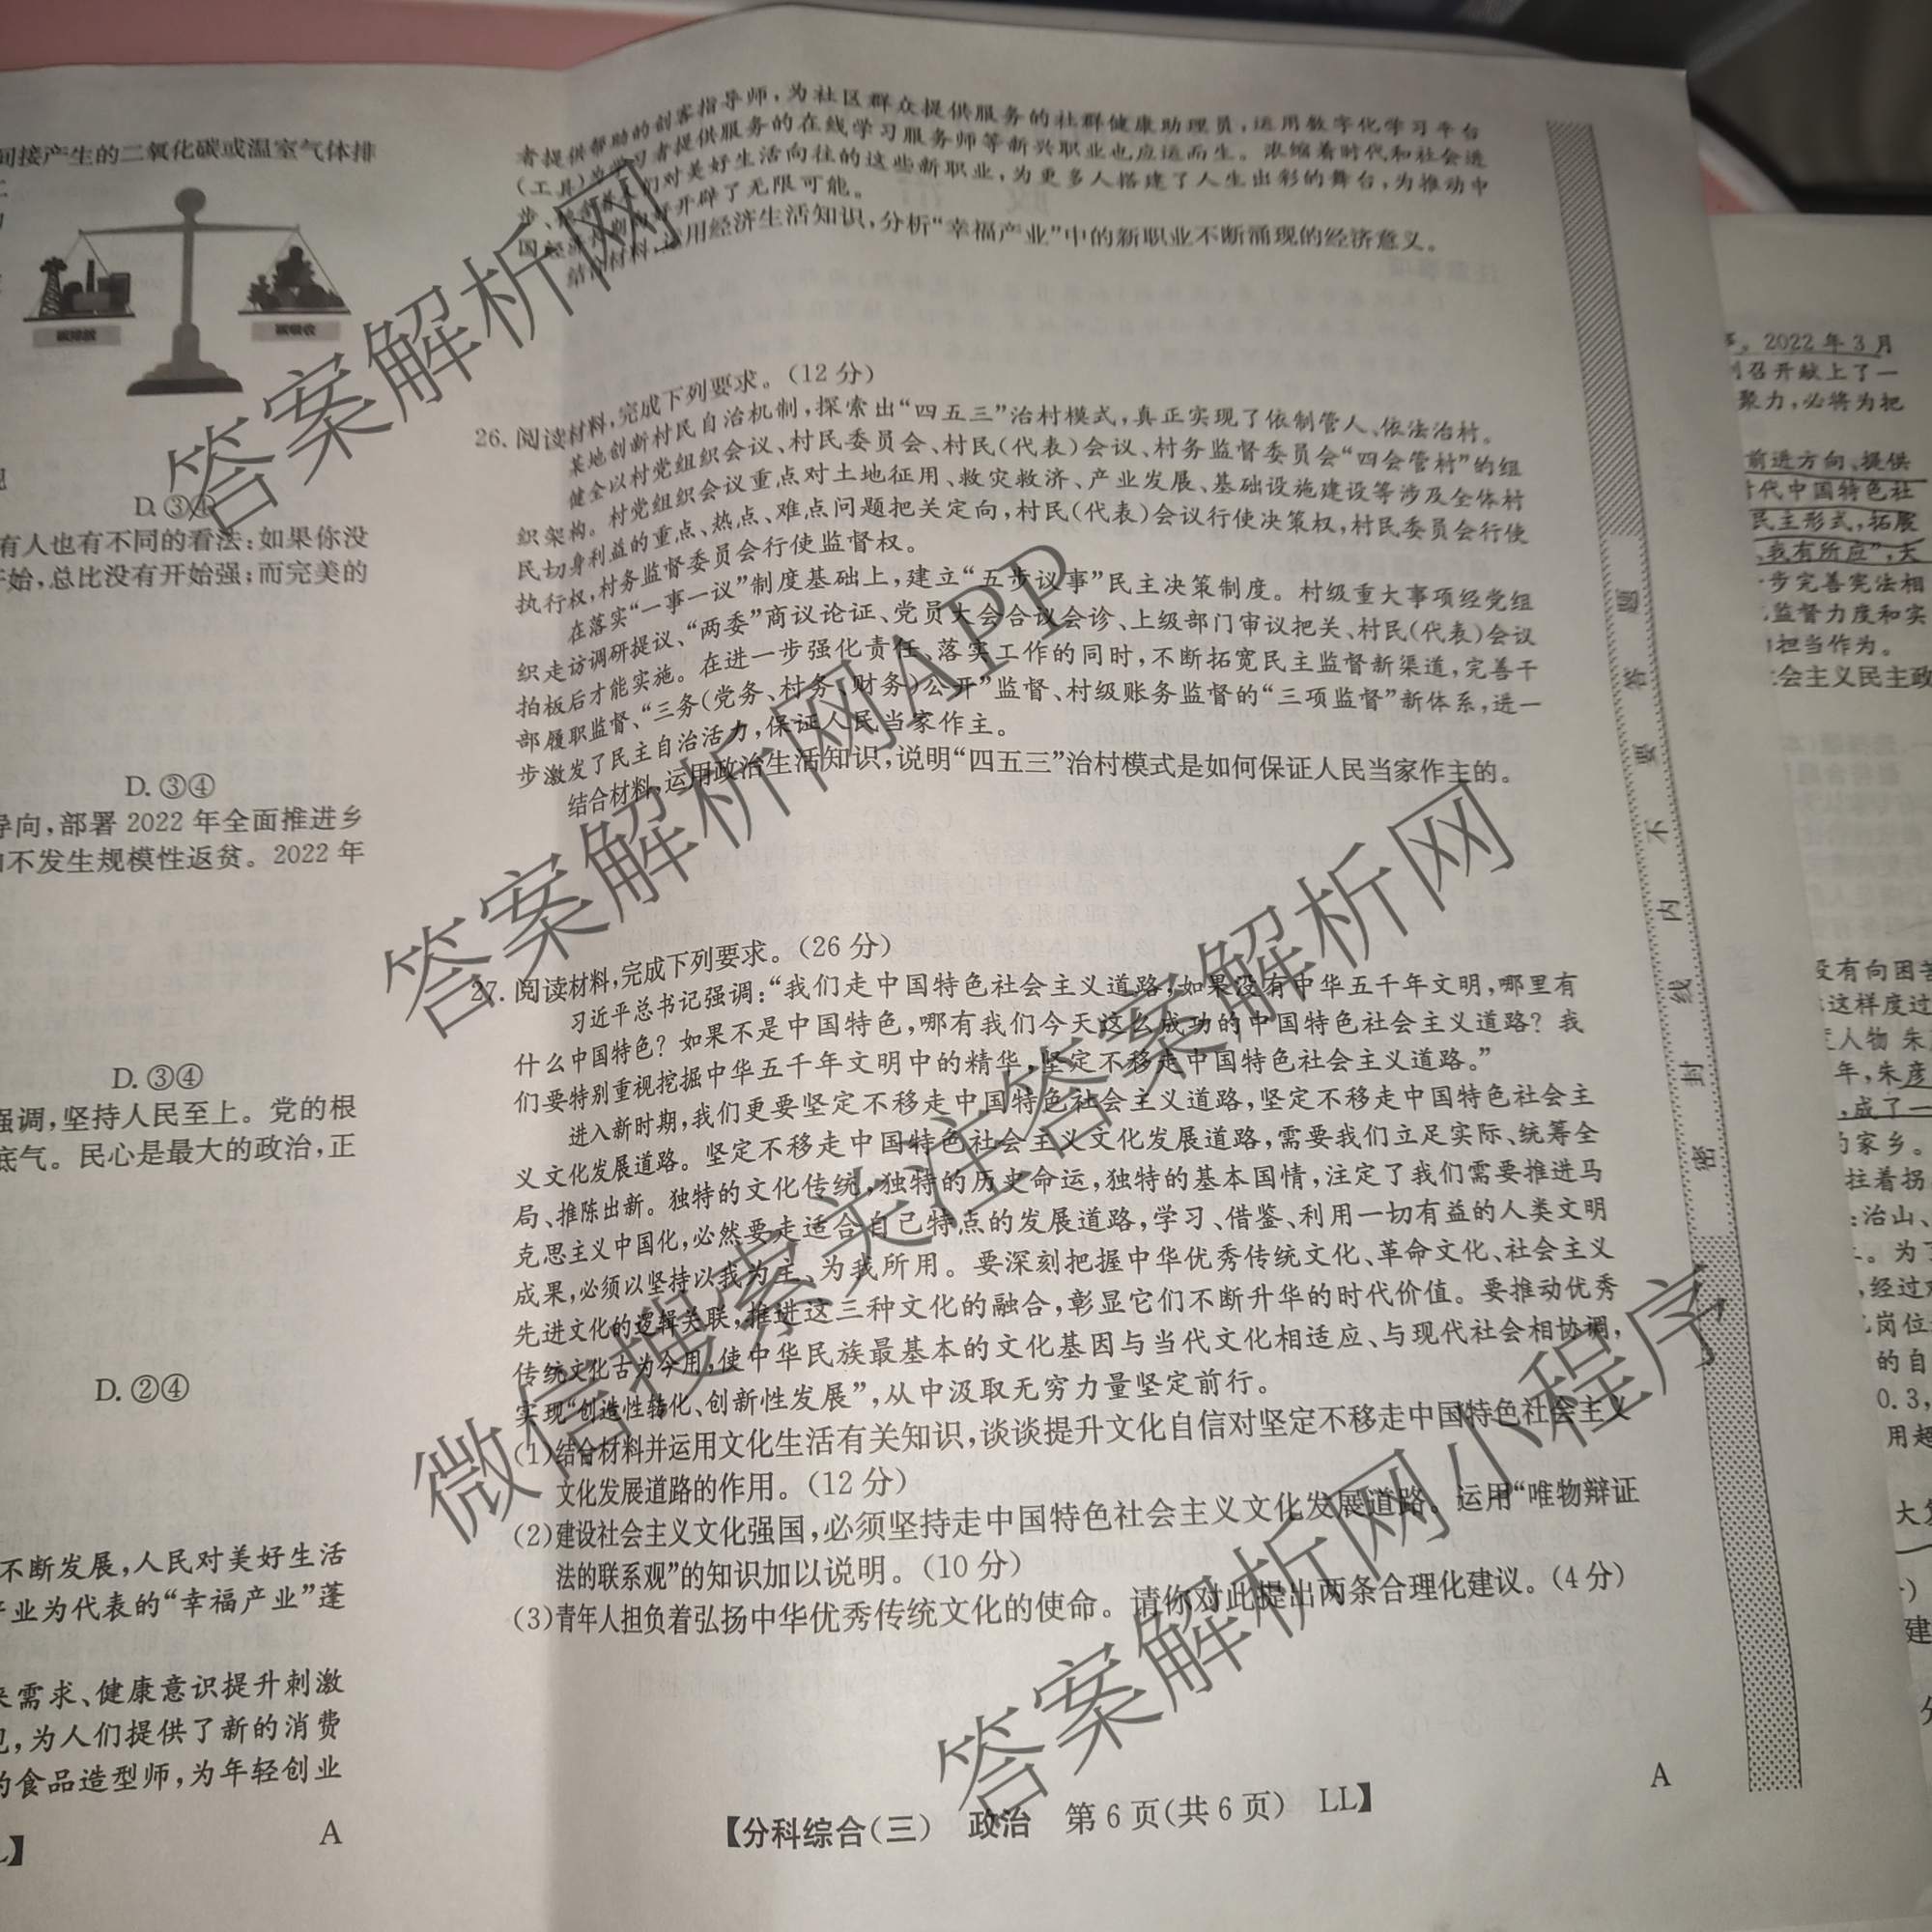 间接产生的二氧化碳或温室气体排
碳排放
碳吸收
D. ③④
有人也有不同的看法:如果你没
开始,总比没有开始强;而完美的
D. ③④
导向,部署 2022 年全面推进乡
不发生规模性返贫。2022 年
D. ③④
强调,坚持人民至上。党的根
底气。民心是最大的政治,正
D. ②④
不断发展,人民对美好生活
产业为代表的“幸福产业”蓬
来需求、健康意识提升刺激
,为人们提供了新的消费
的食品造型师,为年轻创业
A
者提供帮助的创客指导师,为社区群众提供服务的社群健康助理员,运用数字化学习平台
(工具)为学习者提供服务的在线学习服务师等新兴职业也应运而生。浓缩着时代和社会进
步、们对美好生活向往的这些新职业,为更多人搭建了人生出彩的舞台,为推动中
国经济开辟了无限可能。
结合材料,运用经济生活知识,分析“幸福产业”中的新职业不断涌现的经济意义。
26. 阅读材料,完成下列要求。(12 分)
某地创新村民自治机制,探索出“四五三”治村模式,真正实现了依制管人、依法治村。
健全以村党组织会议、村民委员会、村民(代表)会议、村务监督委员会“四会管村”的组
织架构。村党组织会议重点对土地征用、救灾救济、产业发展、基础设施建设等涉及全体村
民切身利益的重点、热点、难点问题把关定向,村民(代表)会议行使决策权,村民委员会行使
执行权,村务监督委员会行使监督权。
在落实“一事一议”制度基础上,建立“五步议事”民主决策制度。村级重大事项经党组
织走访调研提议、“两委”商议论证、党员大会合议会诊、上级部门审议把关、村民(代表)会议
拍板后才能实施。在进一步强化责任、落实工作的同时,不断拓宽民主监督新渠道,完善干
部履职监督、“三务(党务、村务、财务)公开”监督、村级账务监督的“三项监督”新体系,进一
步激发了民主自治活力,保证人民当家作主。
结合材料,运用政治生活知识,说明“四五三”治村模式是如何保证人民当家作主的。
27. 阅读材料,完成下列要求。(26 分)
习近平总书记强调:“我们走中国特色社会主义道路,如果没有中华五千年文明,哪里有
什么中国特色?如果不是中国特色,哪有我们今天这么成功的中国特色社会主义道路?我
们要特别重视挖掘中华五千年文明中的精华,坚定不移走中国特色社会主义道路。”
进入新时期,我们更要坚定不移走中国特色社会主义道路,坚定不移走中国特色社会主
义文化发展道路。坚定不移走中国特色社会主义文化发展道路,需要我们立足实际、统筹全
局、推陈出新。独特的文化传统,独特的历史命运,独特的基本国情,注定了我们需要推进马
克思主义中国化,必然要走适合自己特点的发展道路,学习、借鉴、利用一切有益的人类文明
成果,必须以坚持以我为主、为我所用。要深刻把握中华优秀传统文化、革命文化、社会主义
先进文化的逻辑关联,推进这三种文化的融合,彰显它们不断升华的时代价值。要推动优秀
传统文化古为今用,使中华民族最基本的文化基因与当代文化相适应、与现代社会相协调,
实现“创造性转化、创新性发展”,从中汲取无穷力量坚定前行。
(1)结合材料并运用文化生活有关知识,谈谈提升文化自信对坚定不移走中国特色社会主义
文化发展道路的作用。(12 分)
(2)建设社会主义文化强国,必须坚持走中国特色社会主义文化发展道路。运用“唯物辩证
法的联系观”的知识加以说明。(10 分)
(3)青年人担负着弘扬中华优秀传统文化的使命。请你对此提出两条合理化建议。(4 分)
【分科综合(三) 政治 第 6 页(共 6 页) LL】
A
密 封 线 内 不 要 答 题
2022 年 3 月
召开献上了一
聚力,必将为把
前进方向、提供
时代中国特色社
民主形式,拓展
我有所应”,天
步完善宪法相
监督力度和实
担当作为。
会主义民主政
没有向困苦
这样度过
人物 朱
年,朱彦
,成了一
家乡。
拄着拐
治山、
。为了
,经过
岗位
的自
0.3,
用超
建
答案解析网
答案解析网APP
微信搜索关注答案解析网
答案解析网小程序